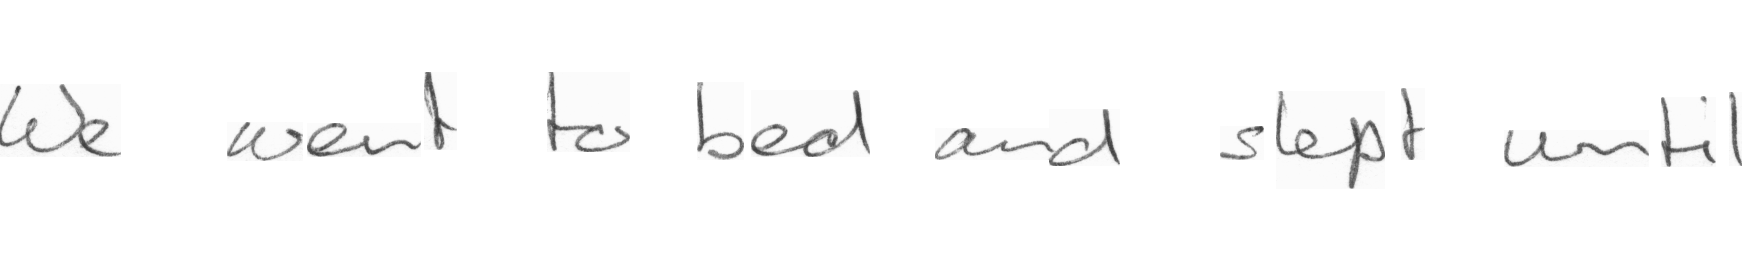 We went to bed and slept until